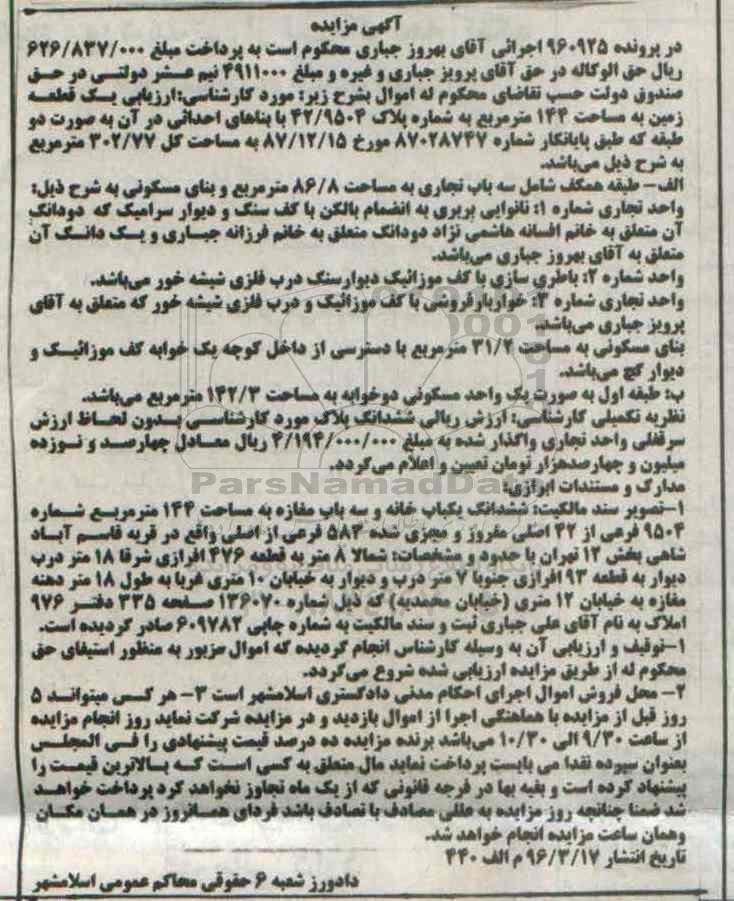 آگهی مزایده
در پرونده ۹۶۰۹۲۵ اجرائی آقای بهروز جباری محکوم است به پرداخت مبلغ ۶۲۶/۸۳۷/۰۰۰
ریال حق الوکاله در حق آقای پرویز جباری و غیره و مبلغ ۴۹۱۱۰۰۰ نیم عشر دولتی در حق
صندوق دولت حسب تقاضای محکوم له اموال بشرح زیر: مورد کارشناسی: ارزیابی یک قطعه
زمین به مساحت ۱۴۴ مترمربع به شماره پلاک ۴۲/۹۵۰۴ با بناهای احداثی در آن به صورت دو
طبقه که طبق پایانکار شماره ۸۷۰۲۸۷۴۷ مورخ ۸۷/۱۲/۱۵ به مساحت کل ۳۰۲/۷۷ مترمربع
به شرح ذیل می‌باشد.
الف- طبقه همکف شامل سه باب تجاری به مساحت ۸۶/۸ مترمربع و بنای مسکونی به شرح ذیل:
واحد تجاری شماره ۱: نانوایی بربری به انضمام بالکن با کف سنگ و دیوار سرامیک که دودانگ
آن متعلق به خانم افسانه هاشمی نژاد دودانگ متعلق به خانم فرزانه جباری و یک دانگ آن
متعلق به آقای بهروز جباری می‌باشد.
واحد شماره ۲: باطری سازی با کف موزائیک دیوارسنگ درب فلزی شیشه خور می‌باشد.
واحد تجاری شماره ۳: خواربارفروشی با کف موزائیک و درب فلزی شیشه خور که متعلق به آقای
پرویز جباری می‌باشد.
بنای مسکونی به مساحت ۳۱/۲ مترمربع با دسترسی از داخل کوچه یک خوابه کف موزائیک و
دیوار گچ می‌باشد.
ب: طبقه اول به صورت یک واحد مسکونی دوخوابه به مساحت ۱۴۲/۳ مترمربع می‌باشد.
نظریه تکمیلی کارشناسی: ارزش ریالی ششدانگ پلاک مورد کارشناسی بدون لحاظ ارزش
سرقفلی واحد تجاری واگذار شده به مبلغ ۴/۱۹۴/۰۰۰/۰۰۰ ریال معادل چهارصد و نوزده
میلیون و چهارصدهزار تومان تعیین و اعلام می‌گردد.
مدارک و مستندات ابرازی:
۱-تصویر سند مالکیت: ششدانگ یکباب خانه و سه باب مغازه به مساحت ۱۴۴ مترمربع شماره
۹۵۰۴ فرعی از ۴۲ اصلی مفروز و مجزی شده ۵۸۳ فرعی از اصلی واقع در قریه قاسم آباد
شاهی بخش ۱۲ تهران با حدود و مشخصات: شمالا ۸ متر به قطعه ۴۷۶ افرازی شرقا ۱۸ متر درب
دیوار به قطعه ۹۳ افرازی جنوبا ۷ متر درب و دیوار به خیابان ۱۰ متری غربا به طول ۱۸ متر دهنه
مغازه به خیابان ۱۲ متری (خیابان محمدیه) که ذیل شماره ۱۳۶۰۷۰ صفحه ۳۳۵ دفتر ۹۷۶
املاک به نام آقای علی جباری ثبت و سند مالکیت به شماره چاپی ۶۰۹۷۸۲ صادر گردیده است.
۱-توقیف و ارزیابی آن به وسیله کارشناس انجام گردیده که اموال مزبور به منظور استیفای حق
محکوم له از طریق مزایده ارزیابی شده شروع می‌گردد.
۲- محل فروش اموال اجرای احکام مدنی دادگستری اسلامشهر است ۳- هر کس میتواند ۵
روز قبل از مزایده با هماهنگی اجرا از اموال بازدید و در مزایده شرکت نماید روز انجام مزایده
از ساعت ۹/۳۰ الی ۱۰/۳۰ می‌باشد برنده مزایده ده درصد قیمت پیشنهادی را فی المجلس
بعنوان سپرده نقدا می بایست پرداخت نماید مال متعلق به کسی است که بالاترین قیمت را
پیشنهاد کرده است و بقیه بها در فرجه قانونی که از یک ماه تجاوز نخواهد کرد پرداخت خواهد
شد ضمنا چنانچه روز مزایده به عللی مصادف با تصادف باشد فردای همانروز در همان مکان
وهمان ساعت مزایده انجام خواهد شد.
تاریخ انتشار ۹۶/۳/۱۷ م الف ۴۴۰
دادورز شعبه ۶ حقوقی محاکم عمومی اسلامشهر
ParsNamadData